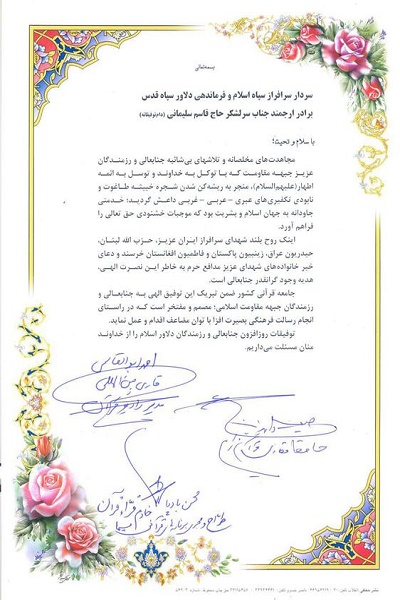 بسمه‌تعالی
سردار سرافراز سپاه اسلام و فرماندهی دلاور سپاه قدس
برادر ارجمند جناب سرلشکر حاج قاسم سلیمانی (دام‌توفیقاته)
با سلام و تحیت؛
مجاهدت‌های مخلصانه و تلاشهای بی‌شائبه جنابعالی و رزمندگان
عزیز جبهه مقاومت که با توکل به خداوند و توسل به ائمه
اطهار(علیهم‌السلام)، منجر به ریشه‌کن شدن شجره خبیثه طاغوت و
نابودی تکفیری‌های عبری – عربی – غربی داعش گردید؛ خدمتی
جاودانه به جهان اسلام و بشریت بود که موجبات خشنودی حق تعالی را
فراهم آورد.
اینک روح بلند شهدای سرافراز ایران عزیز، حزب الله لبنان،
حیدریون عراق، زینبیون پاکستان و فاطمیون افغانستان خرسند و دعای
خیر خانواده‌های شهدای عزیز مدافع حرم به خاطر این نصرت الهی،
هدیه وجود گرانقدر جنابعالی است.
جامعه قرآنی کشور ضمن تبریک این توفیق الهی به جنابعالی و
رزمندگان جبهه اسلامی؛ مصمم و مفتخر است که در راستای
انجام رسالت فرهنگی بصیرت افزا با توان مضاعف اقدام و عمل نماید.
توفیقات روزافزون جنابعالی و رزمندگان دلاور اسلام را از خداوند
منان مسئلت می‌داریم.
احمد ابوالقاسمی
قاری بین‌المللی